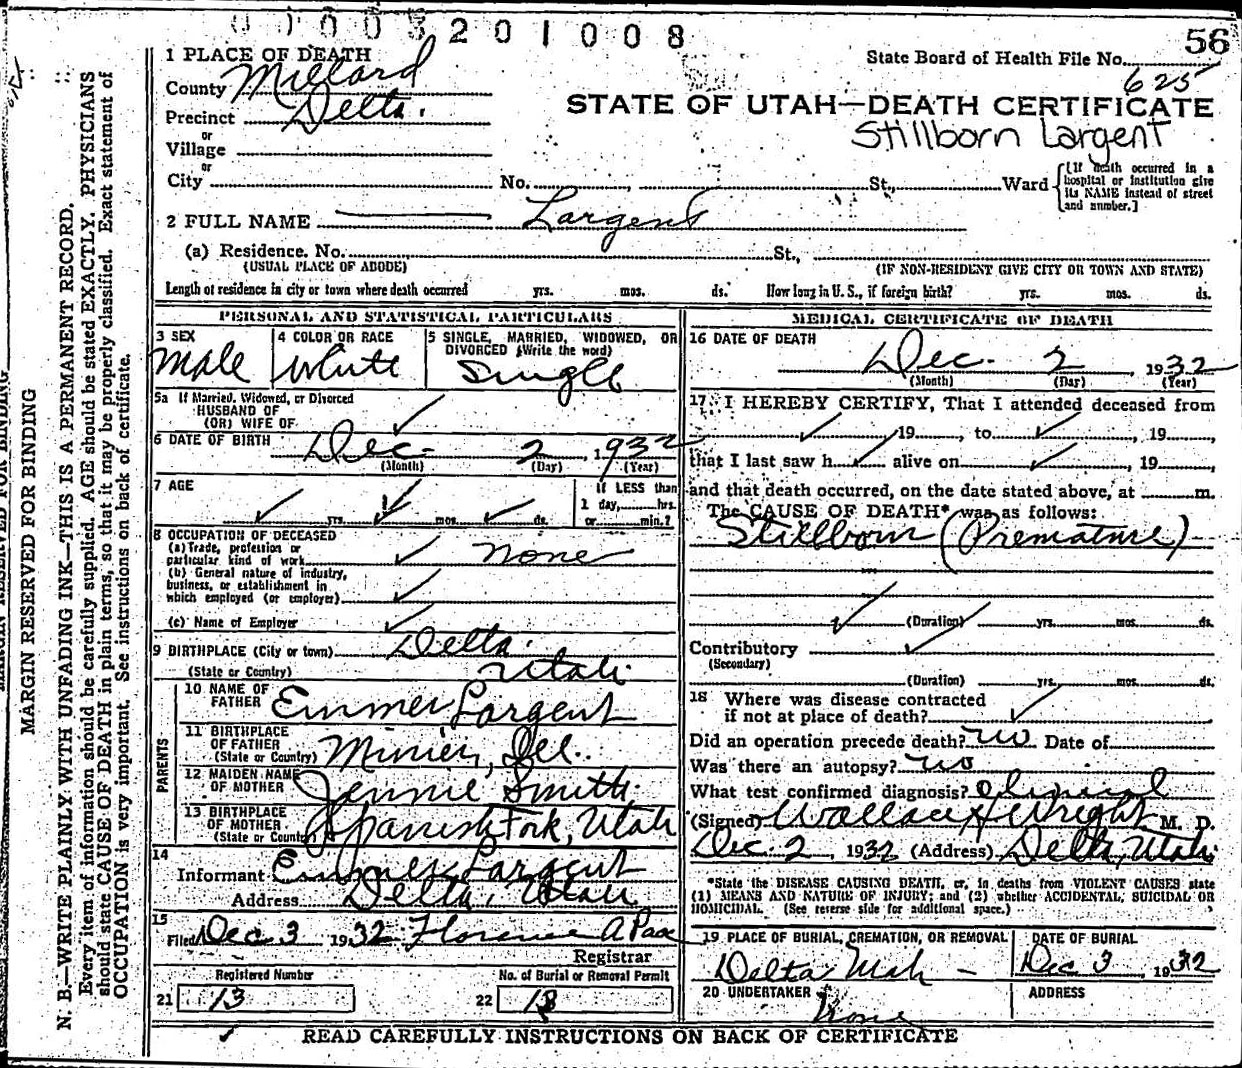 201008
56
1 PLACE OF DEATH
State Board of Health File No.
625
County Millard
Precinct Delta.
STATE OF UTAH—DEATH CERTIFICATE
or
Stillborn Largent
Village
or
City No. , St., Ward
[If death occurred in a
hospital or institution give
its NAME instead of street
and number.]
2 FULL NAME Largent
(a) Residence. No. St.,
(USUAL PLACE OF ABODE) (IF NON-RESIDENT GIVE CITY OR TOWN AND STATE)
Length of residence in city or town where death occurred yrs. mos. ds. How long in U. S., if foreign birth? yrs. mos. ds.
PERSONAL AND STATISTICAL PARTICULARS
3 SEX
Male
4 COLOR OR RACE
White
5 SINGLE, MARRIED, WIDOWED, OR
DIVORCED (Write the word)
Single
5a If Married, Widowed, or Divorced
HUSBAND OF
(OR) WIFE OF
6 DATE OF BIRTH Dec. 2, 1932
(Month) (Day) (Year)
7 AGE
yrs. mos. ds.
If LESS than
1 day, hrs.
or min.?
8 OCCUPATION OF DECEASED
(a) Trade, profession or
particular kind of work none
(b) General nature of industry,
business, or establishment in
which employed (or employer)
(c) Name of Employer
9 BIRTHPLACE (City or town) Delta.
(State or Country) Utah
PARENTS
10 NAME OF
FATHER Emmer Largent
11 BIRTHPLACE
OF FATHER
(State or Country) Minier, Ill.
12 MAIDEN NAME
OF MOTHER Jennie Smith.
13 BIRTHPLACE
OF MOTHER
(State or Country) Spanish Fork, Utah
14
Informant Emmer Largent
Address Delta, Utah
15
Filed Dec 3 1932 Florence A Pace
Registrar
Registered Number
21 13
No. of Burial or Removal Permit
22 13
MEDICAL CERTIFICATE OF DEATH
16 DATE OF DEATH
Dec. 2, 1932
(Month) (Day) (Year)
17 I HEREBY CERTIFY, That I attended deceased from
, 19 , to , 19 ,
that I last saw h alive on , 19 ,
and that death occurred, on the date stated above, at m.
The CAUSE OF DEATH* was as follows:
Stillborn (Premature)
(Duration) yrs. mos. ds.
Contributory
(Secondary)
(Duration) yrs. mos. ds.
18 Where was disease contracted
if not at place of death?
Did an operation precede death? no Date of
Was there an autopsy? no
What test confirmed diagnosis? Clinical
(Signed) Wallace H Wright, M. D.
Dec. 2, 1932 (Address) Delta, Utah
*State the DISEASE CAUSING DEATH, or, in deaths from VIOLENT CAUSES state
(1) MEANS AND NATURE OF INJURY; and (2) whether ACCIDENTAL, SUICIDAL OR
HOMICIDAL. (See reverse side for additional space.)
19 PLACE OF BURIAL, CREMATION, OR REMOVAL
Delta Utah -
DATE OF BURIAL
Dec 3, 1932
20 UNDERTAKER
None
ADDRESS
READ CAREFULLY INSTRUCTIONS ON BACK OF CERTIFICATE
MARGIN RESERVED FOR BINDING
N. B.—WRITE PLAINLY WITH UNFADING INK—THIS IS A PERMANENT RECORD.
Every item of information should be carefully supplied. AGE should be stated EXACTLY. PHYSICIANS
should state CAUSE OF DEATH in plain terms, so that it may be properly classified. Exact statement of
OCCUPATION is very important. See instructions on back of certificate.